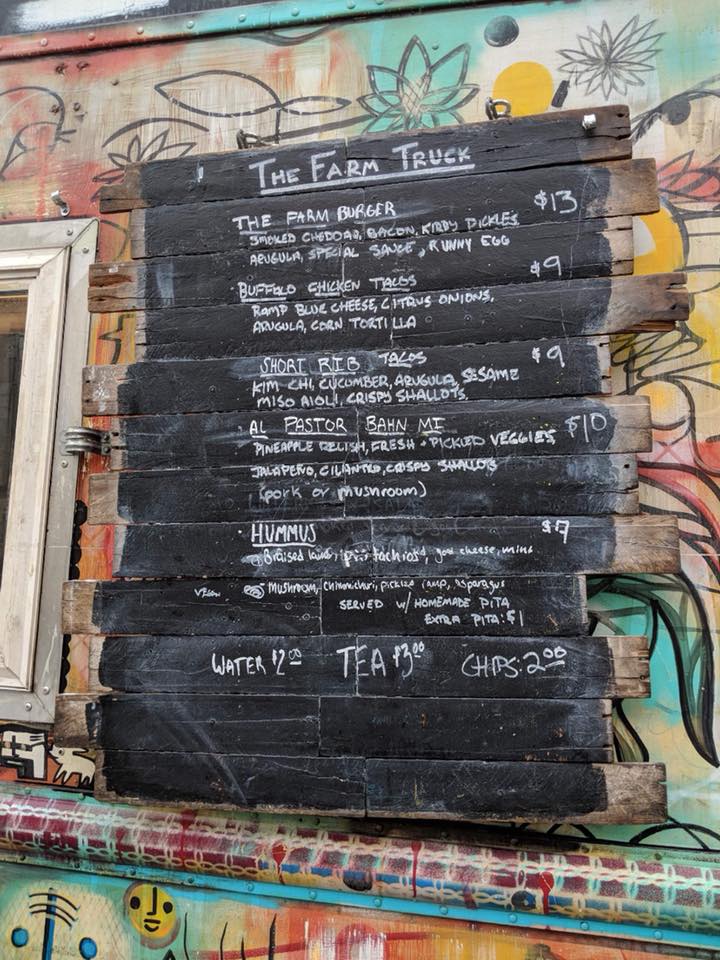 THE FARM TRUCK
THE FARM BURGER $13
SMOKED CHEDDAR, BACON, KIRBY PICKLES,
ARUGULA, SPECIAL SAUCE, RUNNY EGG
BUFFALO CHICKEN TACOS $9
RAMP BLUE CHEESE, CITRUS ONIONS,
ARUGULA, CORN TORTILLA
SHORT RIB TACOS $9
KIM CHI, CUCUMBER, ARUGULA, SESAME
MISO AIOLI, CRISPY SHALLOTS
AL PASTOR BAHN MI $10
PINEAPPLE RELISH, FRESH + PICKLED VEGGIES
JALAPEÑO, CILANTRO, CRISPY SHALLOTS
(pork or mushroom)
HUMMUS $7
Braised lamb, pistachios, goat cheese, mint
VEGAN Mushroom, Chimmichuri, pickled ramp, Asparagus
SERVED W/ HOMEMADE PITA
EXTRA PITA: $1
WATER $2.00 TEA $3.00 CHIPS: 2.00